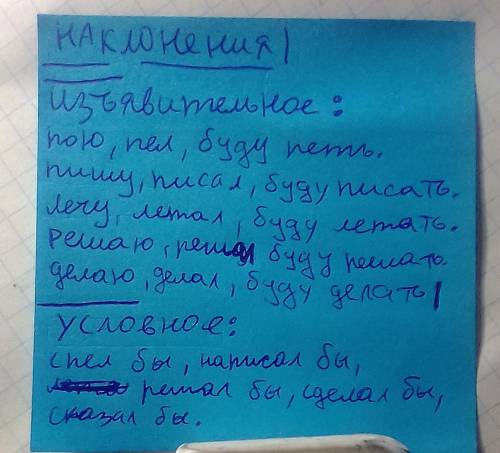 НАКЛОНЕНИЯ
изъявительное:
пою, пел, буду петь.
пишу, писал, буду писать.
лечу, летал, буду летать.
решаю, решал буду решать.
делаю, делал, буду делать
условное:
спел бы, написал бы,
решал бы, сделал бы,
сказал бы.